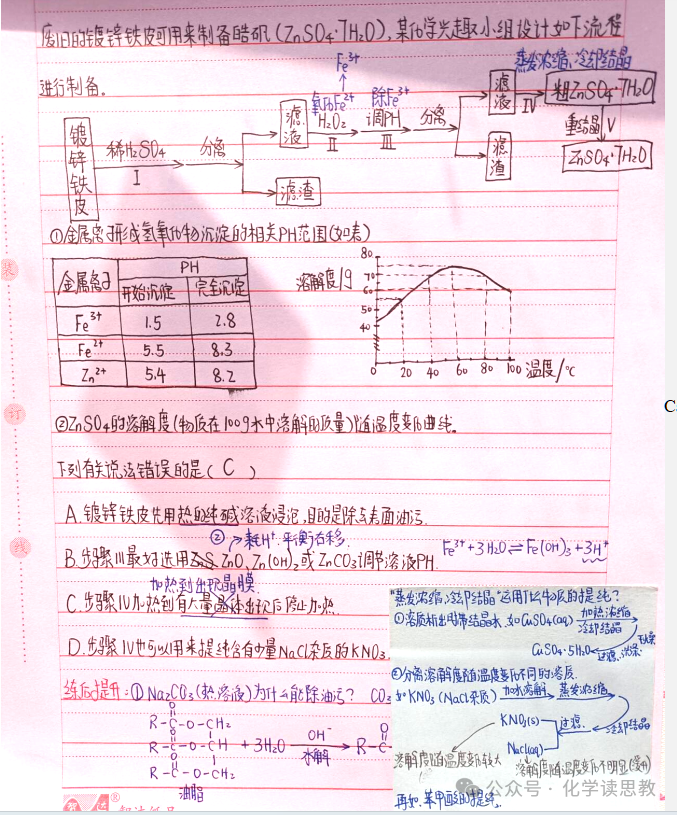 废旧的镀锌铁皮可用来制备皓矾(ZnSO₄·7H₂O),某化学兴趣小组设计如下流程
进行制备。
Fe³⁺
蒸发浓缩、冷却结晶
镀锌铁皮
稀H₂SO₄
I
分离
滤液
氧化Fe²⁺
H₂O₂
II
除Fe³⁺
调PH
III
分离
滤液
IV
粗ZnSO₄·7H₂O
重结晶 V
ZnSO₄·7H₂O
滤渣
滤渣
①金属离子形成氢氧化物沉淀的相关PH范围(如表)
金属离子 PH
开始沉淀 完全沉淀
Fe³⁺ 1.5 2.8
Fe²⁺ 5.5 8.3
Zn²⁺ 5.4 8.2
溶解度/g
80
70
60
50
40
0 20 40 60 80 100 温度/℃
②ZnSO₄的溶解度(物质在100g水中溶解的质量)随温度变化曲线。
下列有关说法错误的是( C )
A.镀锌铁皮先用热的纯碱溶液浸泡,目的是除去表面油污.
② 耗H⁺.平衡右移.
Fe³⁺+3H₂O⇌Fe(OH)₃+3H⁺
B.步骤III最好选用ZnS、ZnO、Zn(OH)₂或ZnCO₃调节溶液PH.
加热到出现晶膜
C.步骤IV加热到有大量晶体出现后停止加热.
D.步骤IV也可以用来提纯含有少量NaCl杂质的KNO₃.
练后提升:①Na₂CO₃(热溶液)为什么能除油污? CO₃
O
R-C-O-CH₂
O
R-C-O-CH + 3H₂O OH⁻ 水解 R-C
O
R-C-O-CH₂
油脂
"蒸发浓缩,冷却结晶"适用什么物质的提纯?
①溶质析出时带结晶水,如CuSO₄(aq) 加热浓缩 冷却结晶
CuSO₄·5H₂O 过滤、洗涤
②分离溶解度随温度变化不同的溶质.
如KNO₃(NaCl杂质) 加水溶解 蒸发浓缩
KNO₃(s) 过滤 冷却结晶
NaCl(aq)
溶解度随温度变化较大
溶解度随温度变化不明显
再如,苯甲酸的提纯.
公众号·化学读思教
C